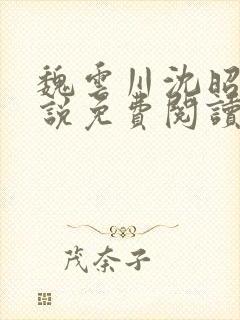 魏雲川沈昭
說免費閱讀
茂奈子